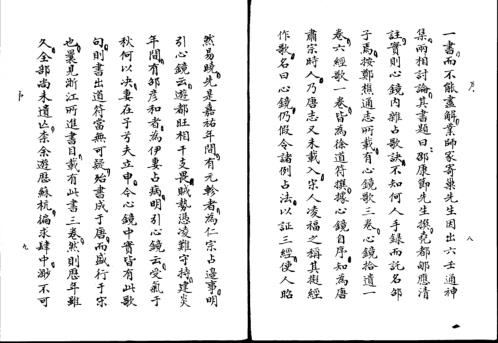 一書而不能盡解業師家寄巢先生因出六壬通神
集兩相討論其書題曰邵康節先生撰堯都鄭應清
註實則心鏡內雜占歌訣不知何人手錄而託名邵
子焉按鄭樵通志所載有心鏡歌三卷心鏡拾遺一
卷六經歌一卷皆為徐道符撰據心鏡自序知為唐
肅宗時人乃唐志又未載入宋人凌福之稱其擬經
作歌名曰心鏡仍假令諸例占法以証三經使人昭
八
然易曉先是嘉祐年間有元軫者為仁宗占邊事明
引心鏡云遊都旺相干支畏賊勢憑凌難守持建炎
年間有邵彥和者為伊妻占病明引心鏡云受氣于
秋何以決妻在子兮夫立申今心鏡中實皆有此歌
句則書出道符當無可疑殆書成于唐而盛行于宋
也曩見浙江所進書目載有此書三卷然則歷年雖
久全部尚未遺亡柰余遊歷蘇杭徧求肆中渺不可
九